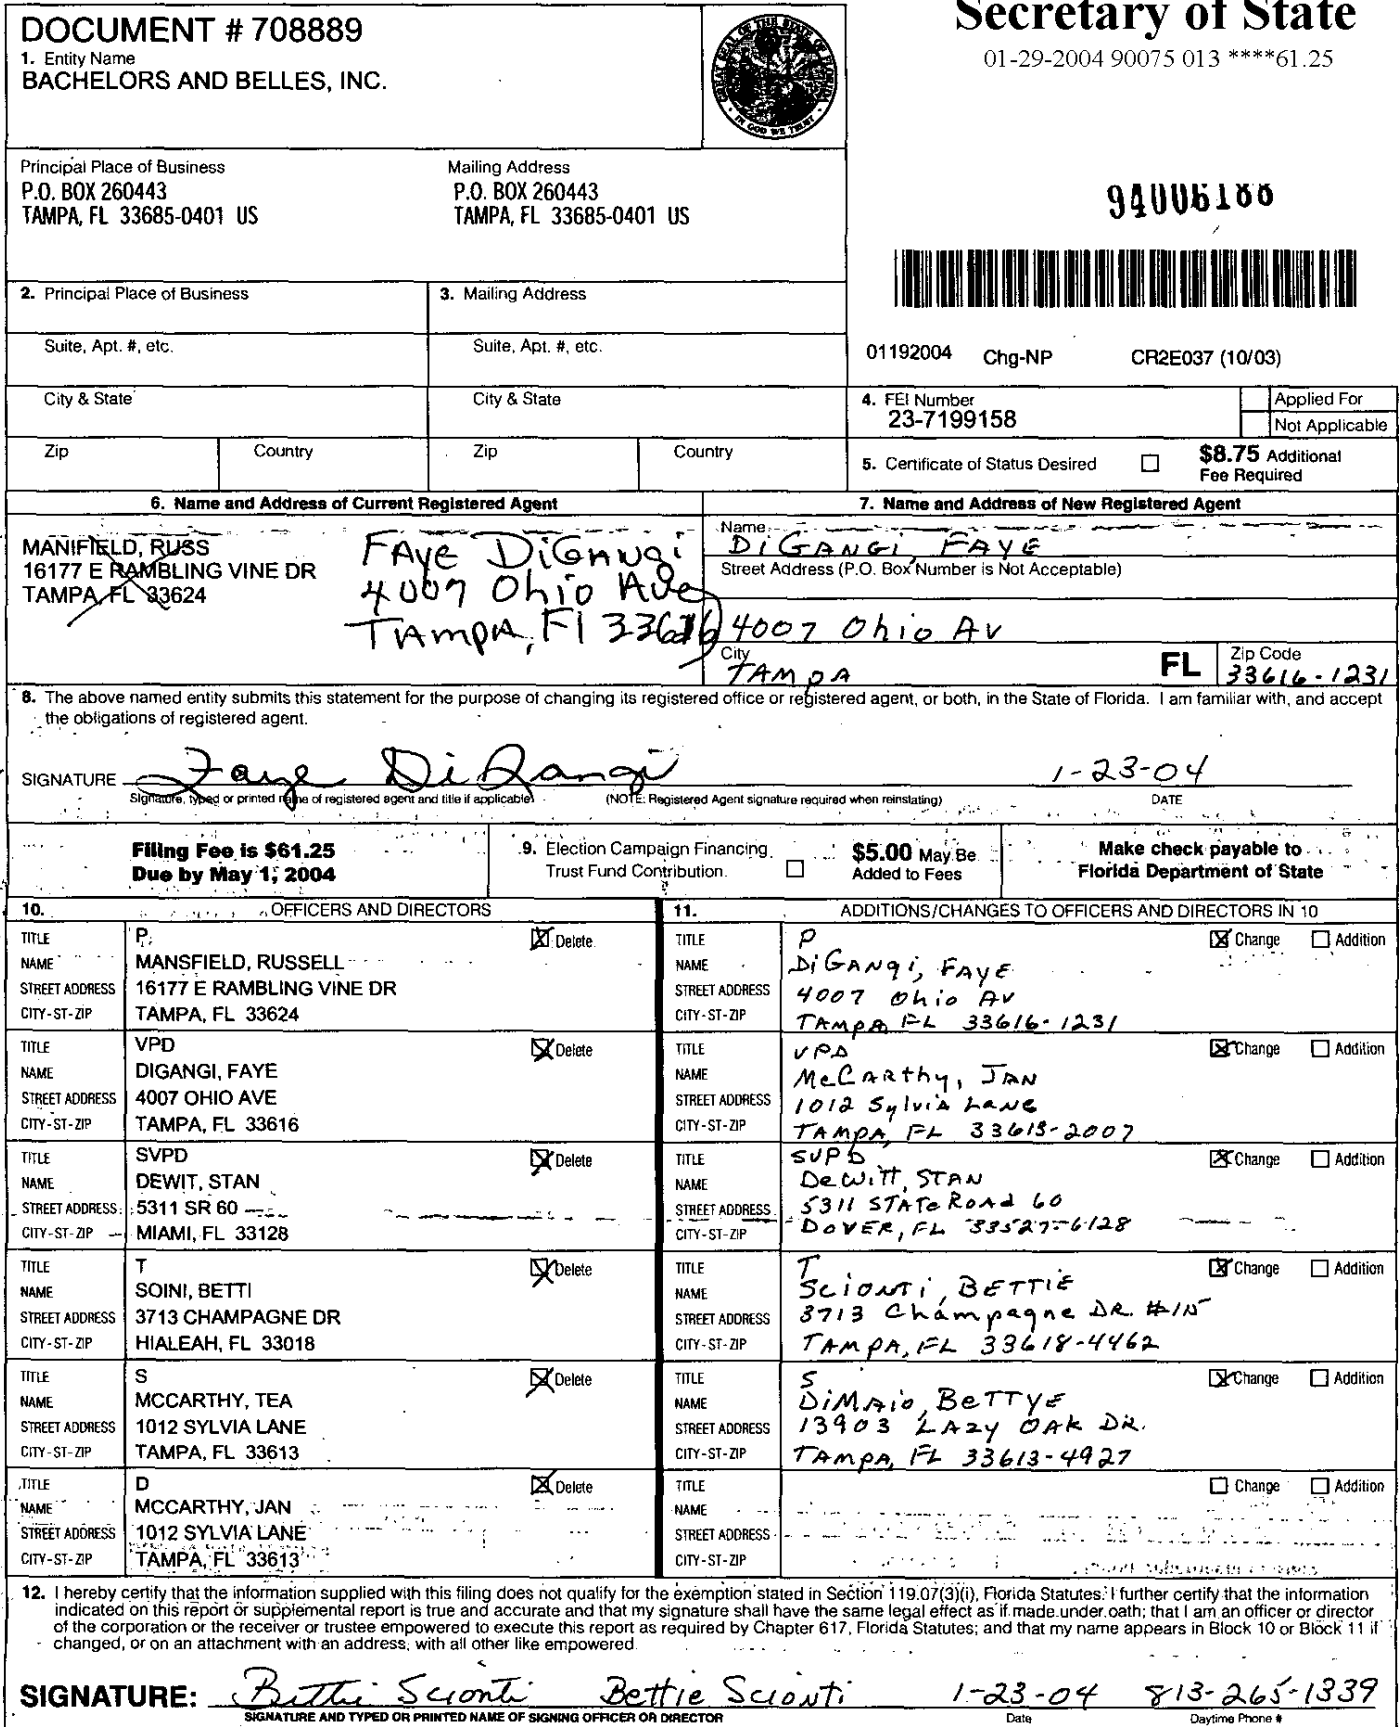 Secretary of State
01-29-2004 90075 013 ****61.25
DOCUMENT # 708889
1. Entity Name
BACHELORS AND BELLES, INC.
GREAT SEAL OF THE STATE OF FLORIDA
IN GOD WE TRUST
Principal Place of Business
P.O. BOX 260443
TAMPA, FL 33685-0401 US
Mailing Address
P.O. BOX 260443
TAMPA, FL 33685-0401 US
94006188
2. Principal Place of Business
3. Mailing Address
Suite, Apt. #, etc.
Suite, Apt. #, etc.
01192004 Chg-NP CR2E037 (10/03)
City & State
City & State
4. FEI Number
23-7199158
Applied For
Not Applicable
Zip Country
Zip Country
5. Certificate of Status Desired
$8.75 Additional
Fee Required
6. Name and Address of Current Registered Agent
MANIFIELD, RUSS
16177 E RAMBLING VINE DR
TAMPA, FL 33624
FAye DiGangi
4007 Ohio Ave
TAmpA, Fl 33616
7. Name and Address of New Registered Agent
Name
DiGANGi, FAYE
Street Address (P.O. Box Number is Not Acceptable)
4007 Ohio Av
City
TAMPA
FL
Zip Code
33616-1231
8. The above named entity submits this statement for the purpose of changing its registered office or registered agent, or both, in the State of Florida. I am familiar with, and accept
the obligations of registered agent.
SIGNATURE Faye DiGangi 1-23-04
Signature, typed or printed name of registered agent and title if applicable.
(NOTE: Registered Agent signature required when reinstating)
DATE
Filing Fee is $61.25
Due by May 1, 2004
9. Election Campaign Financing
Trust Fund Contribution.
$5.00 May Be
Added to Fees
Make check payable to
Florida Department of State
10. OFFICERS AND DIRECTORS
TITLE P. Delete
NAME MANSFIELD, RUSSELL
STREET ADDRESS 16177 E RAMBLING VINE DR
CITY-ST-ZIP TAMPA, FL 33624
TITLE VPD Delete
NAME DIGANGI, FAYE
STREET ADDRESS 4007 OHIO AVE
CITY-ST-ZIP TAMPA, FL 33616
TITLE SVPD Delete
NAME DEWIT, STAN
STREET ADDRESS 5311 SR 60
CITY-ST-ZIP MIAMI, FL 33128
TITLE T Delete
NAME SOINI, BETTI
STREET ADDRESS 3713 CHAMPAGNE DR
CITY-ST-ZIP HIALEAH, FL 33018
TITLE S Delete
NAME MCCARTHY, TEA
STREET ADDRESS 1012 SYLVIA LANE
CITY-ST-ZIP TAMPA, FL 33613
TITLE D Delete
NAME MCCARTHY, JAN
STREET ADDRESS 1012 SYLVIA LANE
CITY-ST-ZIP TAMPA, FL 33613
11. ADDITIONS/CHANGES TO OFFICERS AND DIRECTORS IN 10
TITLE P Change Addition
NAME DiGANgi, FAYE
STREET ADDRESS 4007 Ohio Av
CITY-ST-ZIP TAMPA FL 33616-1231
TITLE VPD Change Addition
NAME McCARthy, JAN
STREET ADDRESS 1012 Sylvia Lane
CITY-ST-ZIP TAMPA, FL 33613-2007
TITLE SVPD Change Addition
NAME DeWitt, STAN
STREET ADDRESS 5311 STATE ROAd 60
CITY-ST-ZIP DOVER, FL 33527-6128
TITLE T Change Addition
NAME SCIONTi, BETTIE
STREET ADDRESS 3713 Champagne DR. #15
CITY-ST-ZIP TAMPA, FL 33618-4462
TITLE S Change Addition
NAME DiMAio, BETTYE
STREET ADDRESS 13903 LAZY OAK DR.
CITY-ST-ZIP TAMPA, FL 33613-4927
TITLE Change Addition
NAME
STREET ADDRESS
CITY-ST-ZIP
12. I hereby certify that the information supplied with this filing does not qualify for the exemption stated in Section 119.07(3)(i), Florida Statutes. I further certify that the information
indicated on this report or supplemental report is true and accurate and that my signature shall have the same legal effect as if made under oath; that I am an officer or director
of the corporation or the receiver or trustee empowered to execute this report as required by Chapter 617, Florida Statutes; and that my name appears in Block 10 or Block 11 if
changed, or on an attachment with an address, with all other like empowered.
SIGNATURE: Bettie Scionti Bettie Scionti 1-23-04 813-265-1339
SIGNATURE AND TYPED OR PRINTED NAME OF SIGNING OFFICER OR DIRECTOR
Date
Daytime Phone #